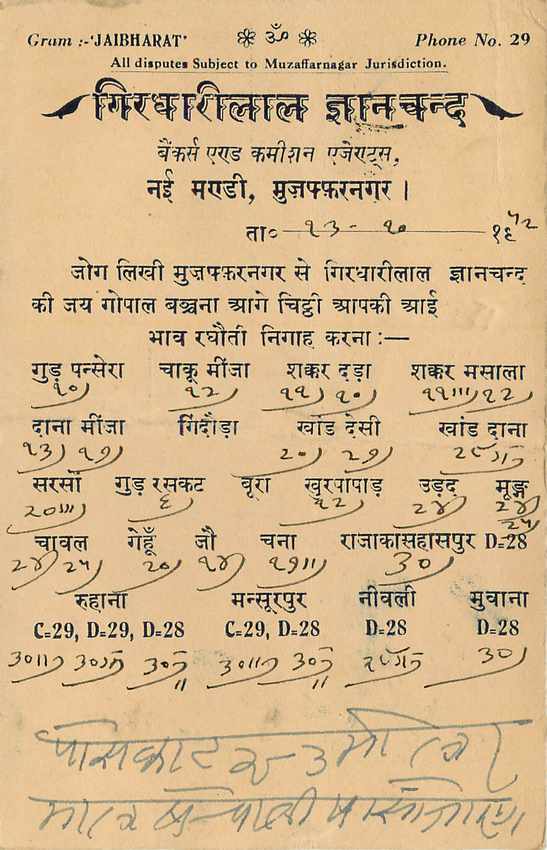 Gram :-'JAIBHARAT' ॐ Phone No. 29
All disputes Subject to Muzaffarnagar Jurisdiction.
गिरधारीलाल ज्ञानचन्द
बैंकर्स एण्ड कमीशन एजेण्ट्स,
नई मण्डी, मुज़फ्फ़रनगर ।
ता० १३-१० १९५२
जोग लिखी मुज़फ्फ़रनगर से गिरधारीलाल ज्ञानचन्द
की जय गोपाल बञ्चना आगे चिट्ठी आपकी आई
भाव रघौती निगाह करना :—
गुड़ पन्सेरा चाकू मींजा शक्कर दड़ा शक्कर मसाला
१०) १२) ११) १०) ११॥।) १२)
दाना मींजा गिंदौड़ा खांड देसी खांड दाना
१३) १७) २०) २७)
सरसों गुड़ रसकट बूरा खुरपापाड़ उड़द मूङ्ग
२०॥।) ६) १२) २४) २४) २५)
चावल गेहूँ जौ चना राजाकासहासपुर D=28
२४) २५) २०) १४) १७॥) ३०)
रुहाना मन्सूरपुर नीवली मुवाना
C=29, D=29, D=28 C=29, D=28 D=28 D=28
३०॥) ३०) ३०॥) ३०)